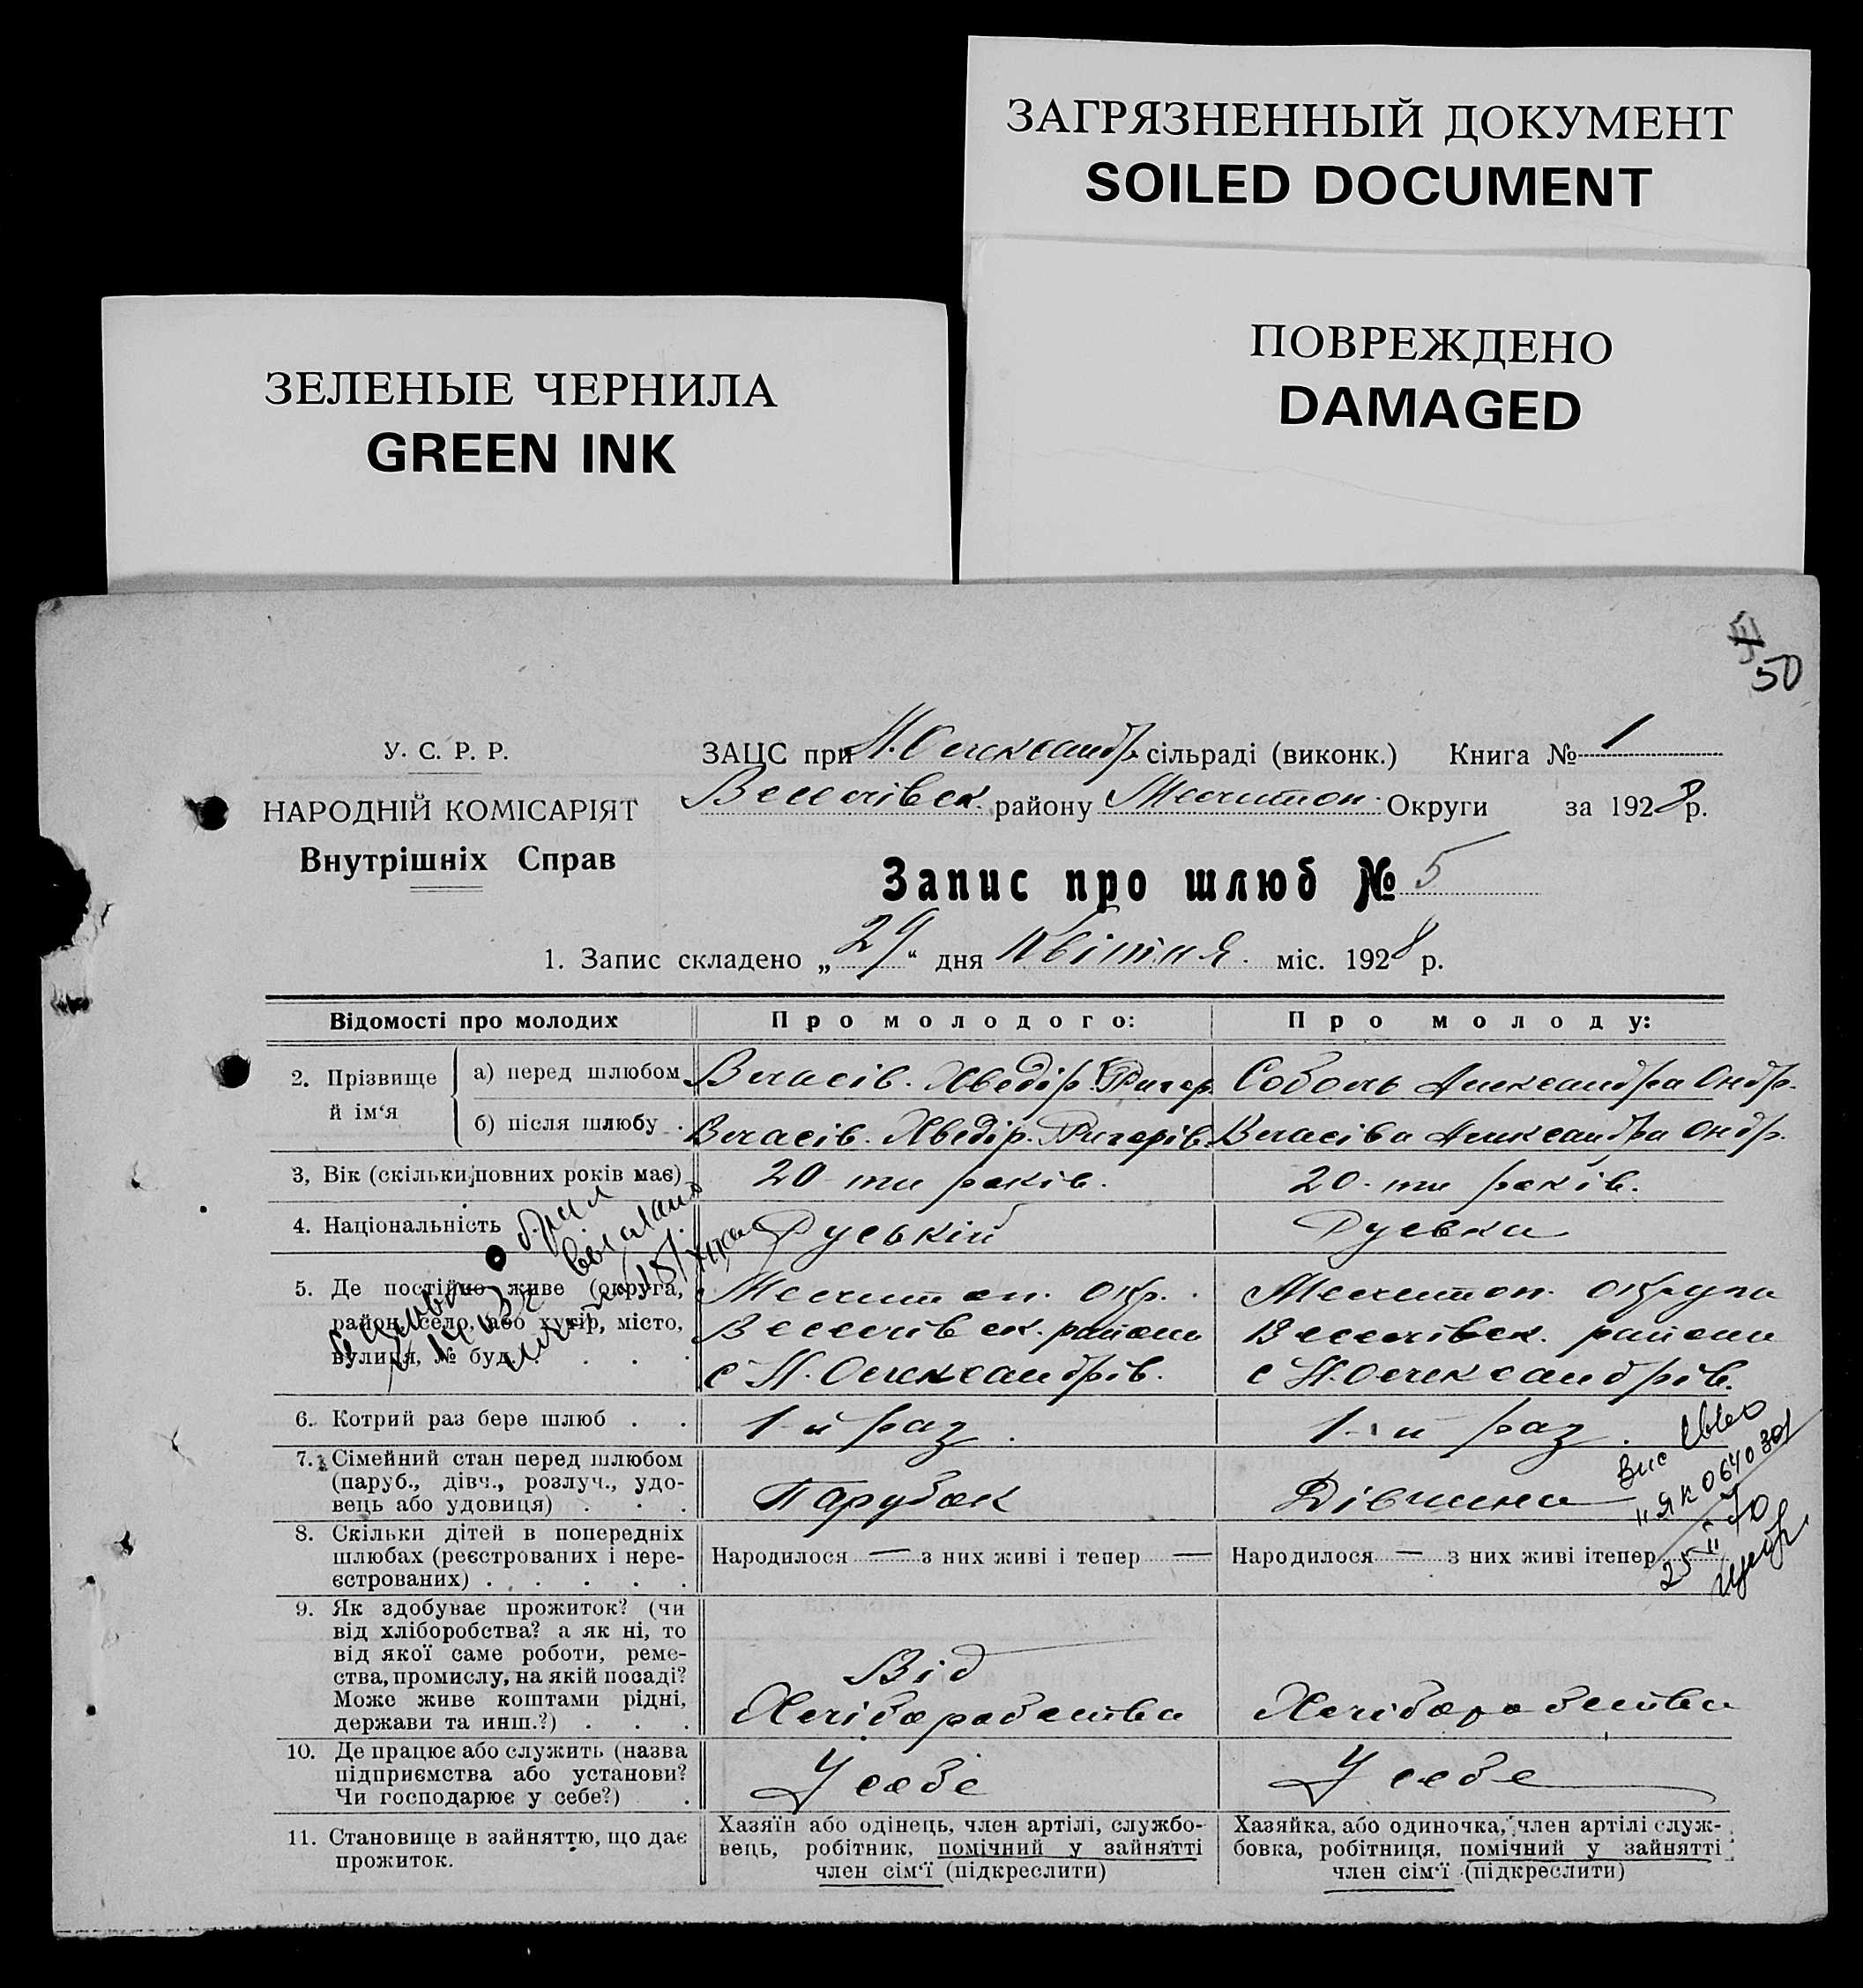 ЗАГРЯЗНЕННЫЙ ДОКУМЕНТ
SOILED DOCUMENT
ПОВРЕЖДЕНО
DAMAGED
ЗЕЛЕНЫЕ ЧЕРНИЛА
GREEN INK
50
У. С. Р. Р.
НАРОДНІЙ КОМІСАРІЯТ
Внутрішніх Справ
ЗАЦС при Н. Олександр. сільраді (виконк.) Книга № 1
Веселівск. району Мелитоп. Округи за 1928 р.
Запис про шлюб № 5
1. Запис складено „29“ дня Квітня міс. 1928 р.
Відомості про молодих Про молодого: Про молоду:
2. Прізвище й ім‘я
а) перед шлюбом Власів. Хведір Григор. Соболь Александра Андр.
б) після шлюбу . Власів. Хведір. Григорів. Власіва Александра Андр.
3, Вік (скільки повних років має) 20-ти років. 20-ти років.
4. Національність Руський Руська
5. Де постійно живе (округа, район, село, або хутір, місто, вулиця, № буд. . . . .
Мелитоп. Окр.
Веселівск. району
с Н. Олександрів.
Мелитоп. округи
Веселівск. району
с Н. Олександрів.
6. Котрий раз бере шлюб . . 1-й раз. 1-й раз.
7. Сімейний стан перед шлюбом
(паруб., дівч., розлуч., удо-
вець або удовиця) . . . Парубок Дівчина
ЯК 064030
25 II 70
8. Скільки дітей в попередніх
шлюбах (реєстрованих і нере-
єстрованих) . . . . . .
Народилося — з них живі і тепер — Народилося — з них живі ітепер
9. Як здобуває прожиток? (чи
від хліборобства? а як ні, то
від якої саме роботи, реме-
ства, промислу, на якій посаді?
Може живе коштами рідні,
держави та инш.?) . . .
Від
Хліборобства Хліборобства
10. Де працює або служить (назва
підприємства або установи?
Чи господарює у себе?) .
У себе У себе
11. Становище в зайняттю, що дає
прожиток.
Хазяїн або одінець, член артілі, службо-
вець, робітник, помічний у зайнятті
член сім‘ї (підкреслити)
Хазяйка, або одиночка, член артілі служ-
бовка, робітниця, помічний у зайнятті
член сім‘ї (підкреслити)